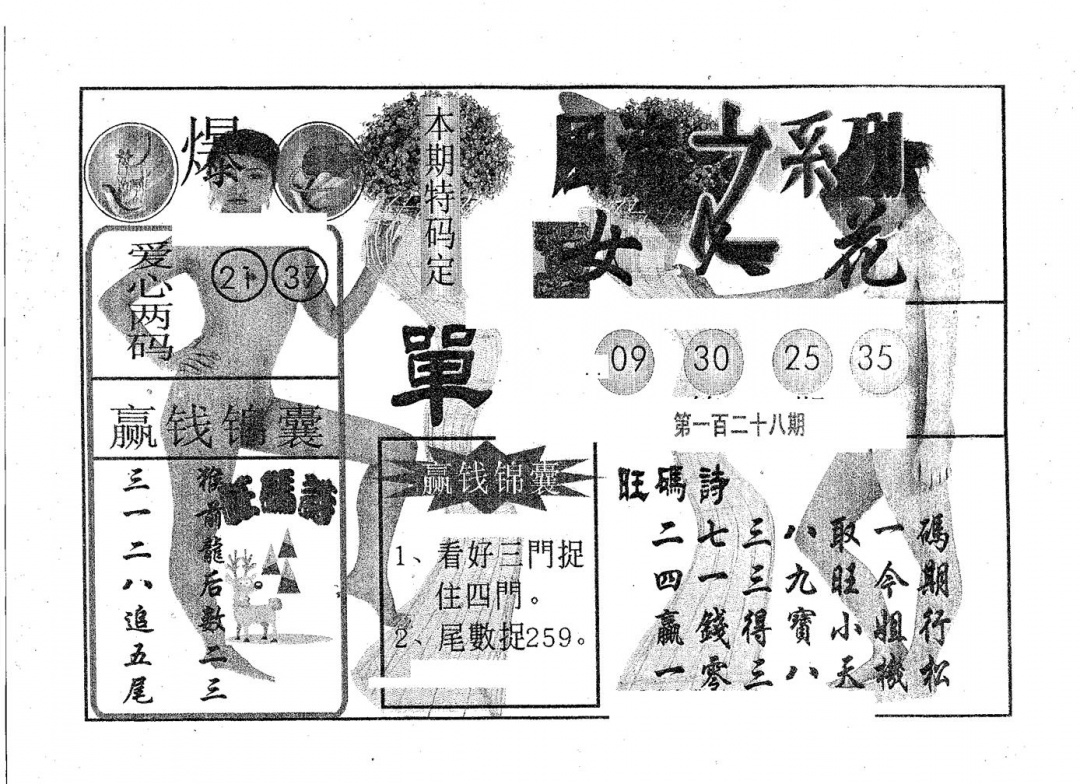 爆
本期特码定
單
之系列
女 花
爱心两码
21 37
09 30 25 35
第一百二十八期
赢钱锦囊
猴前龍后數二三
三一二八追五尾
旺碼詩
赢钱锦囊
1、看好三門捉
住四門。
2、尾數捉259。
旺碼詩
二七三八取一碼
四一三九旺今期
贏錢得寶小姐行
一零三八天機松